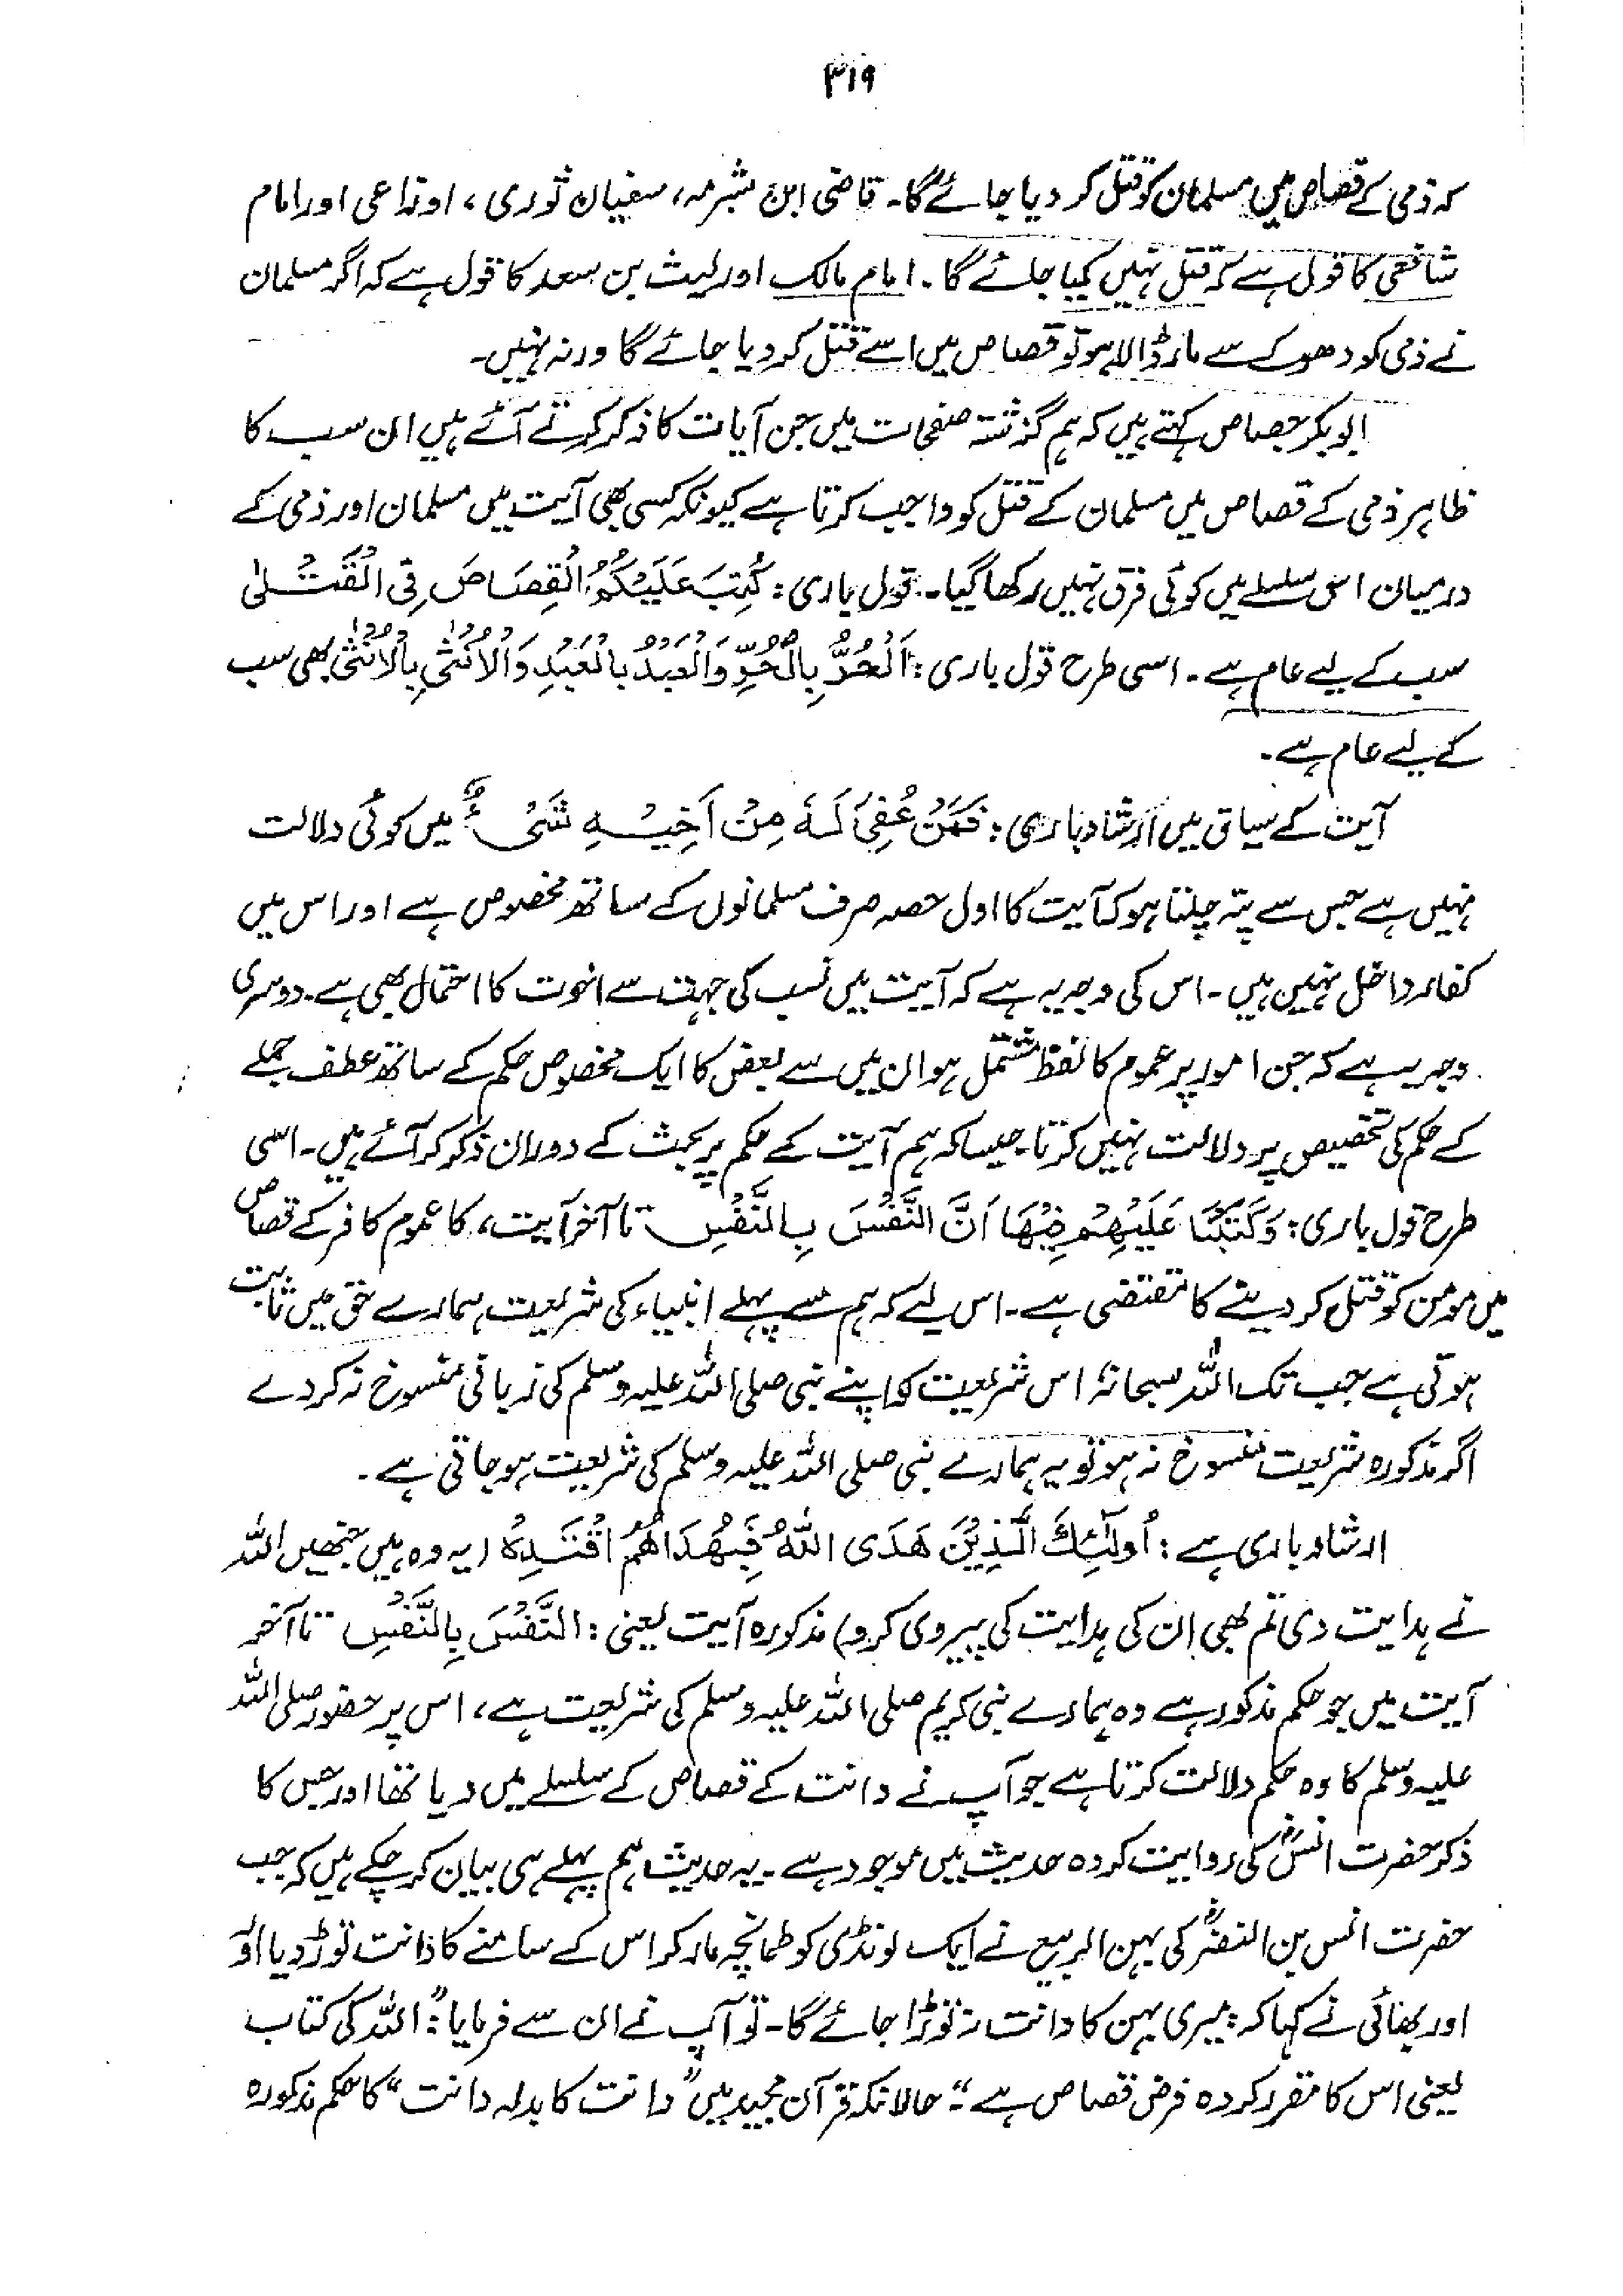 ۳۱۹
کہ ذمی کے قصاص میں مسلمان کو قتل کر دیا جائے گا۔ قاضی ابن شبرمہ، سفیان ثوری، اوزاعی اور امام
شافعی کا قول ہے کہ قتل نہیں کیا جائے گا۔ امام مالک اور لیث بن سعد کا قول ہے کہ اگر مسلمان
نے ذمی کو دھوکے سے مار ڈالا ہو تو قصاص میں اسے قتل کر دیا جائے گا ورنہ نہیں۔
ابوبکر جصاص کہتے ہیں کہ ہم گذشتہ صفحات میں جن آیات کا ذکر کرتے آئے ہیں ان سب کا
ظاہر ذمی کے قصاص میں مسلمان کے قتل کو واجب کرتا ہے کیونکہ کسی بھی آیت میں مسلمان اور ذمی کے
درمیان اس سلسلے میں کوئی فرق نہیں رکھا گیا۔ قول باری: كُتِبَ عَلَيْكُمُ الْقِصَاصَ فِي الْقَتْلٰى
سب کے لیے عام ہے۔ اسی طرح قول باری: اَلْحُرُّ بِالْحُرِّ وَالْعَبْدُ بِالْعَبْدِ وَالْاُنْثٰى بِالْاُنْثٰى بھی سب
کے لیے عام ہے۔
آیت کے سیاق میں ارشاد باری: فَمَنْ عُفِيَ لَهٗ مِنْ اَخِيْهِ شَىْءٌ میں کوئی دلالت
نہیں ہے جس سے پتہ چلتا ہو کہ آیت کا اول حصہ صرف مسلمانوں کے ساتھ مخصوص ہے اور اس میں
کفار داخل نہیں ہیں۔ اس کی وجہ یہ ہے کہ آیت میں نسب کی جہت سے اخوت کا احتمال بھی ہے۔ دوسری
وجہ یہ ہے کہ جن امور پر عموم کا لفظ مشتمل ہو ان میں سے بعض کا ایک مخصوص حکم کے ساتھ عطف جملے
کے حکم کی تخصیص پر دلالت نہیں کرتا۔ جیسا کہ ہم آیت کے حکم پر بحث کے دوران ذکر کر آئے ہیں۔ اسی
طرح قول باری: وَكَتَبْنَا عَلَيْهِمْ فِيْهَا اَنَّ النَّفْسَ بِالنَّفْسِ تا آخر آیت، کا عموم کافر کے قصاص
میں مومن کو قتل کر دینے کا مقتضی ہے۔ اس لیے کہ ہم سے پہلے انبیاء کی شریعت ہمارے حق میں ثابت
ہوتی ہے جب تک اللہ سبحانہٗ اس شریعت کو اپنے نبی صلی اللہ علیہ وسلم کی زبانی منسوخ نہ کر دے
اگر مذکورہ شریعت منسوخ نہ ہو تو یہ ہمارے نبی صلی اللہ علیہ وسلم کی شریعت ہو جاتی ہے۔
ارشاد باری ہے: اُولٰٓئِكَ الَّذِيْنَ هَدَى اللهُ فَبِهُدَاهُمُ اقْتَدِهْ (یہ وہ ہیں جنھیں اللہ
نے ہدایت دی تم بھی ان کی ہدایت کی پیروی کرو) مذکورہ آیت یعنی: النَّفْسَ بِالنَّفْسِ تا آخر
آیت میں جو حکم مذکور ہے وہ ہمارے نبی کریم صلی اللہ علیہ وسلم کی شریعت ہے، اس پر حضور صلی اللہ
علیہ وسلم کا وہ حکم دلالت کرتا ہے جو آپ نے دانت کے قصاص کے سلسلے میں دیا تھا اور جس کا
ذکر حضرت انسؓ کی روایت کردہ حدیث میں موجود ہے۔ یہ حدیث ہم پہلے ہی بیان کر چکے ہیں کہ جب
حضرت انس بن النضرؓ کی بہن الربیع نے ایک لونڈی کو طمانچہ مار کر اس کے سامنے کا دانت توڑ دیا اور
اور بھائی نے کہا کہ: میری بہن کا دانت نہ توڑا جائے گا۔ تو آپ نے ان سے فرمایا: "اللہ کی کتاب
یعنی اس کا مقرر کردہ فرض قصاص ہے"۔ حالانکہ قرآن مجید میں "دانت کا بدلہ دانت" کا حکم مذکورہ